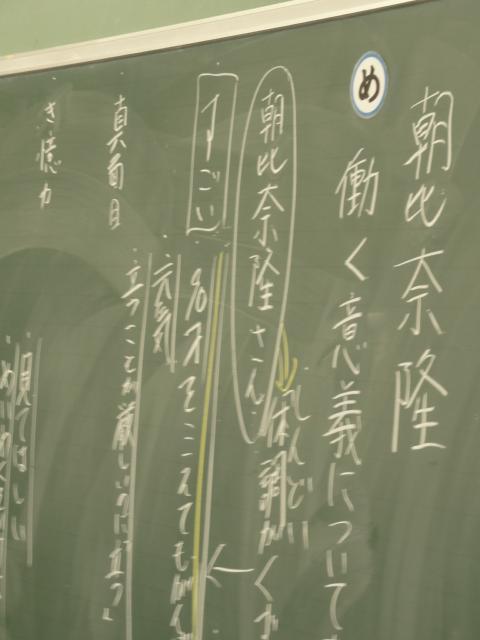 朝比奈隆
め
働く意義について
朝比奈隆さん
しんどい
体調がくず
すごい
90才をこえてもがん
元気
立つことが厳しいのに立つ
真面目
き憶力
見てほしい